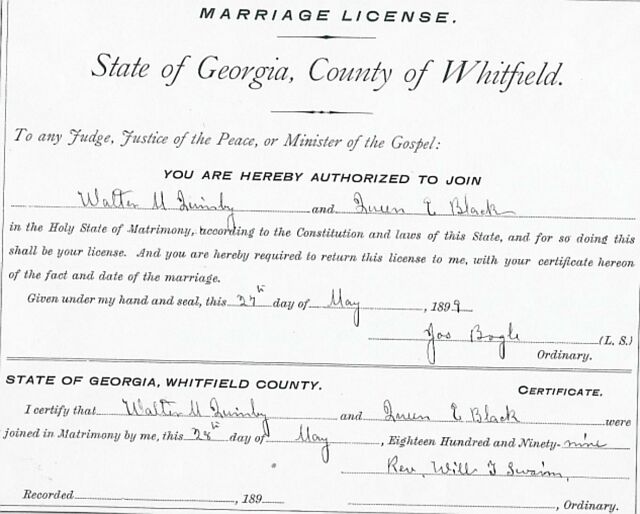 MARRIAGE LICENSE.
State of Georgia, County of Whitfield.
To any Judge, Justice of the Peace, or Minister of the Gospel:
YOU ARE HEREBY AUTHORIZED TO JOIN
Walter M Quinby and Queen E Black
in the Holy State of Matrimony, according to the Constitution and laws of this State, and for so doing this
shall be your license. And you are hereby required to return this license to me, with your certificate hereon
of the fact and date of the marriage.
Given under my hand and seal, this 27th day of May, 1899
Jos Bogle (L. S.)
Ordinary.
STATE OF GEORGIA, WHITFIELD COUNTY. CERTIFICATE.
I certify that Walter M Quinby and Queen E Black were
joined in Matrimony by me, this 28th day of May, Eighteen Hundred and Ninety-nine
Rev. Will T Swaim,
Recorded, 189 , Ordinary.